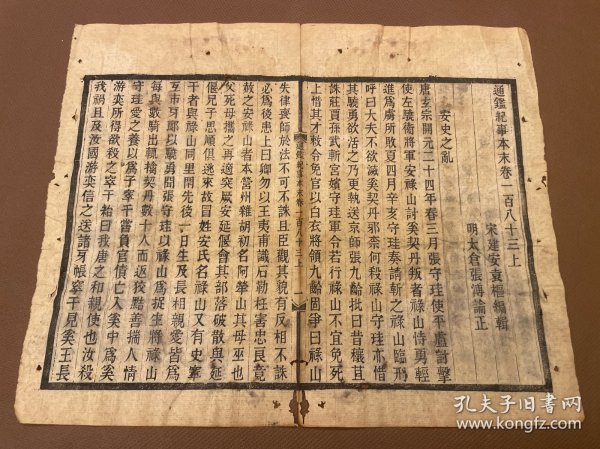 通鑑紀事本末卷一百八十三上
宋建安袁樞編輯
明太倉張溥論正
安史之亂
唐玄宗開元二十四年春三月張守珪使平盧討擊
使左驍衞將軍安祿山討奚契丹叛者祿山恃勇輕
進爲虜所敗夏四月辛亥守珪奏請斬之祿山臨刑
呼曰大夫不欲滅奚契丹邪柰何殺祿山守珪亦惜
其驍勇欲活之乃更執送京師張九齡批曰昔穰苴
誅莊賈孫武斬宮嬪守珪軍令若行祿山不宜免死
上惜其才敕令免官以白衣將領九齡固爭曰祿山
通鑑紀事本末卷一百八十三上
一
失律喪師於法不可不誅且臣觀其貌有反相不誅
必爲後患上曰卿勿以王夷甫識石勒枉害忠良竟
赦之安祿山者本營州雜胡初名阿犖山其母巫也
父死母攜之再適突厥安延偃會其部落破散與延
偃兄子思順俱逃來故冒姓安氏名祿山又有史窣
干者與祿山同里閈先後一日生及長相親愛皆爲
互市牙郎以驍勇聞張守珪以祿山爲捉生將祿山
每與數騎出輒擒契丹數十人而返狡黠善揣人情
守珪愛之養以爲子窣干嘗負官債亡入奚中爲奚
游奕所得欲殺之窣干紿曰我唐之和親使也汝殺
我禍且及汝國游奕信之送詣牙帳窣干見奚王長
孔夫子旧书网
www.kongfz.com